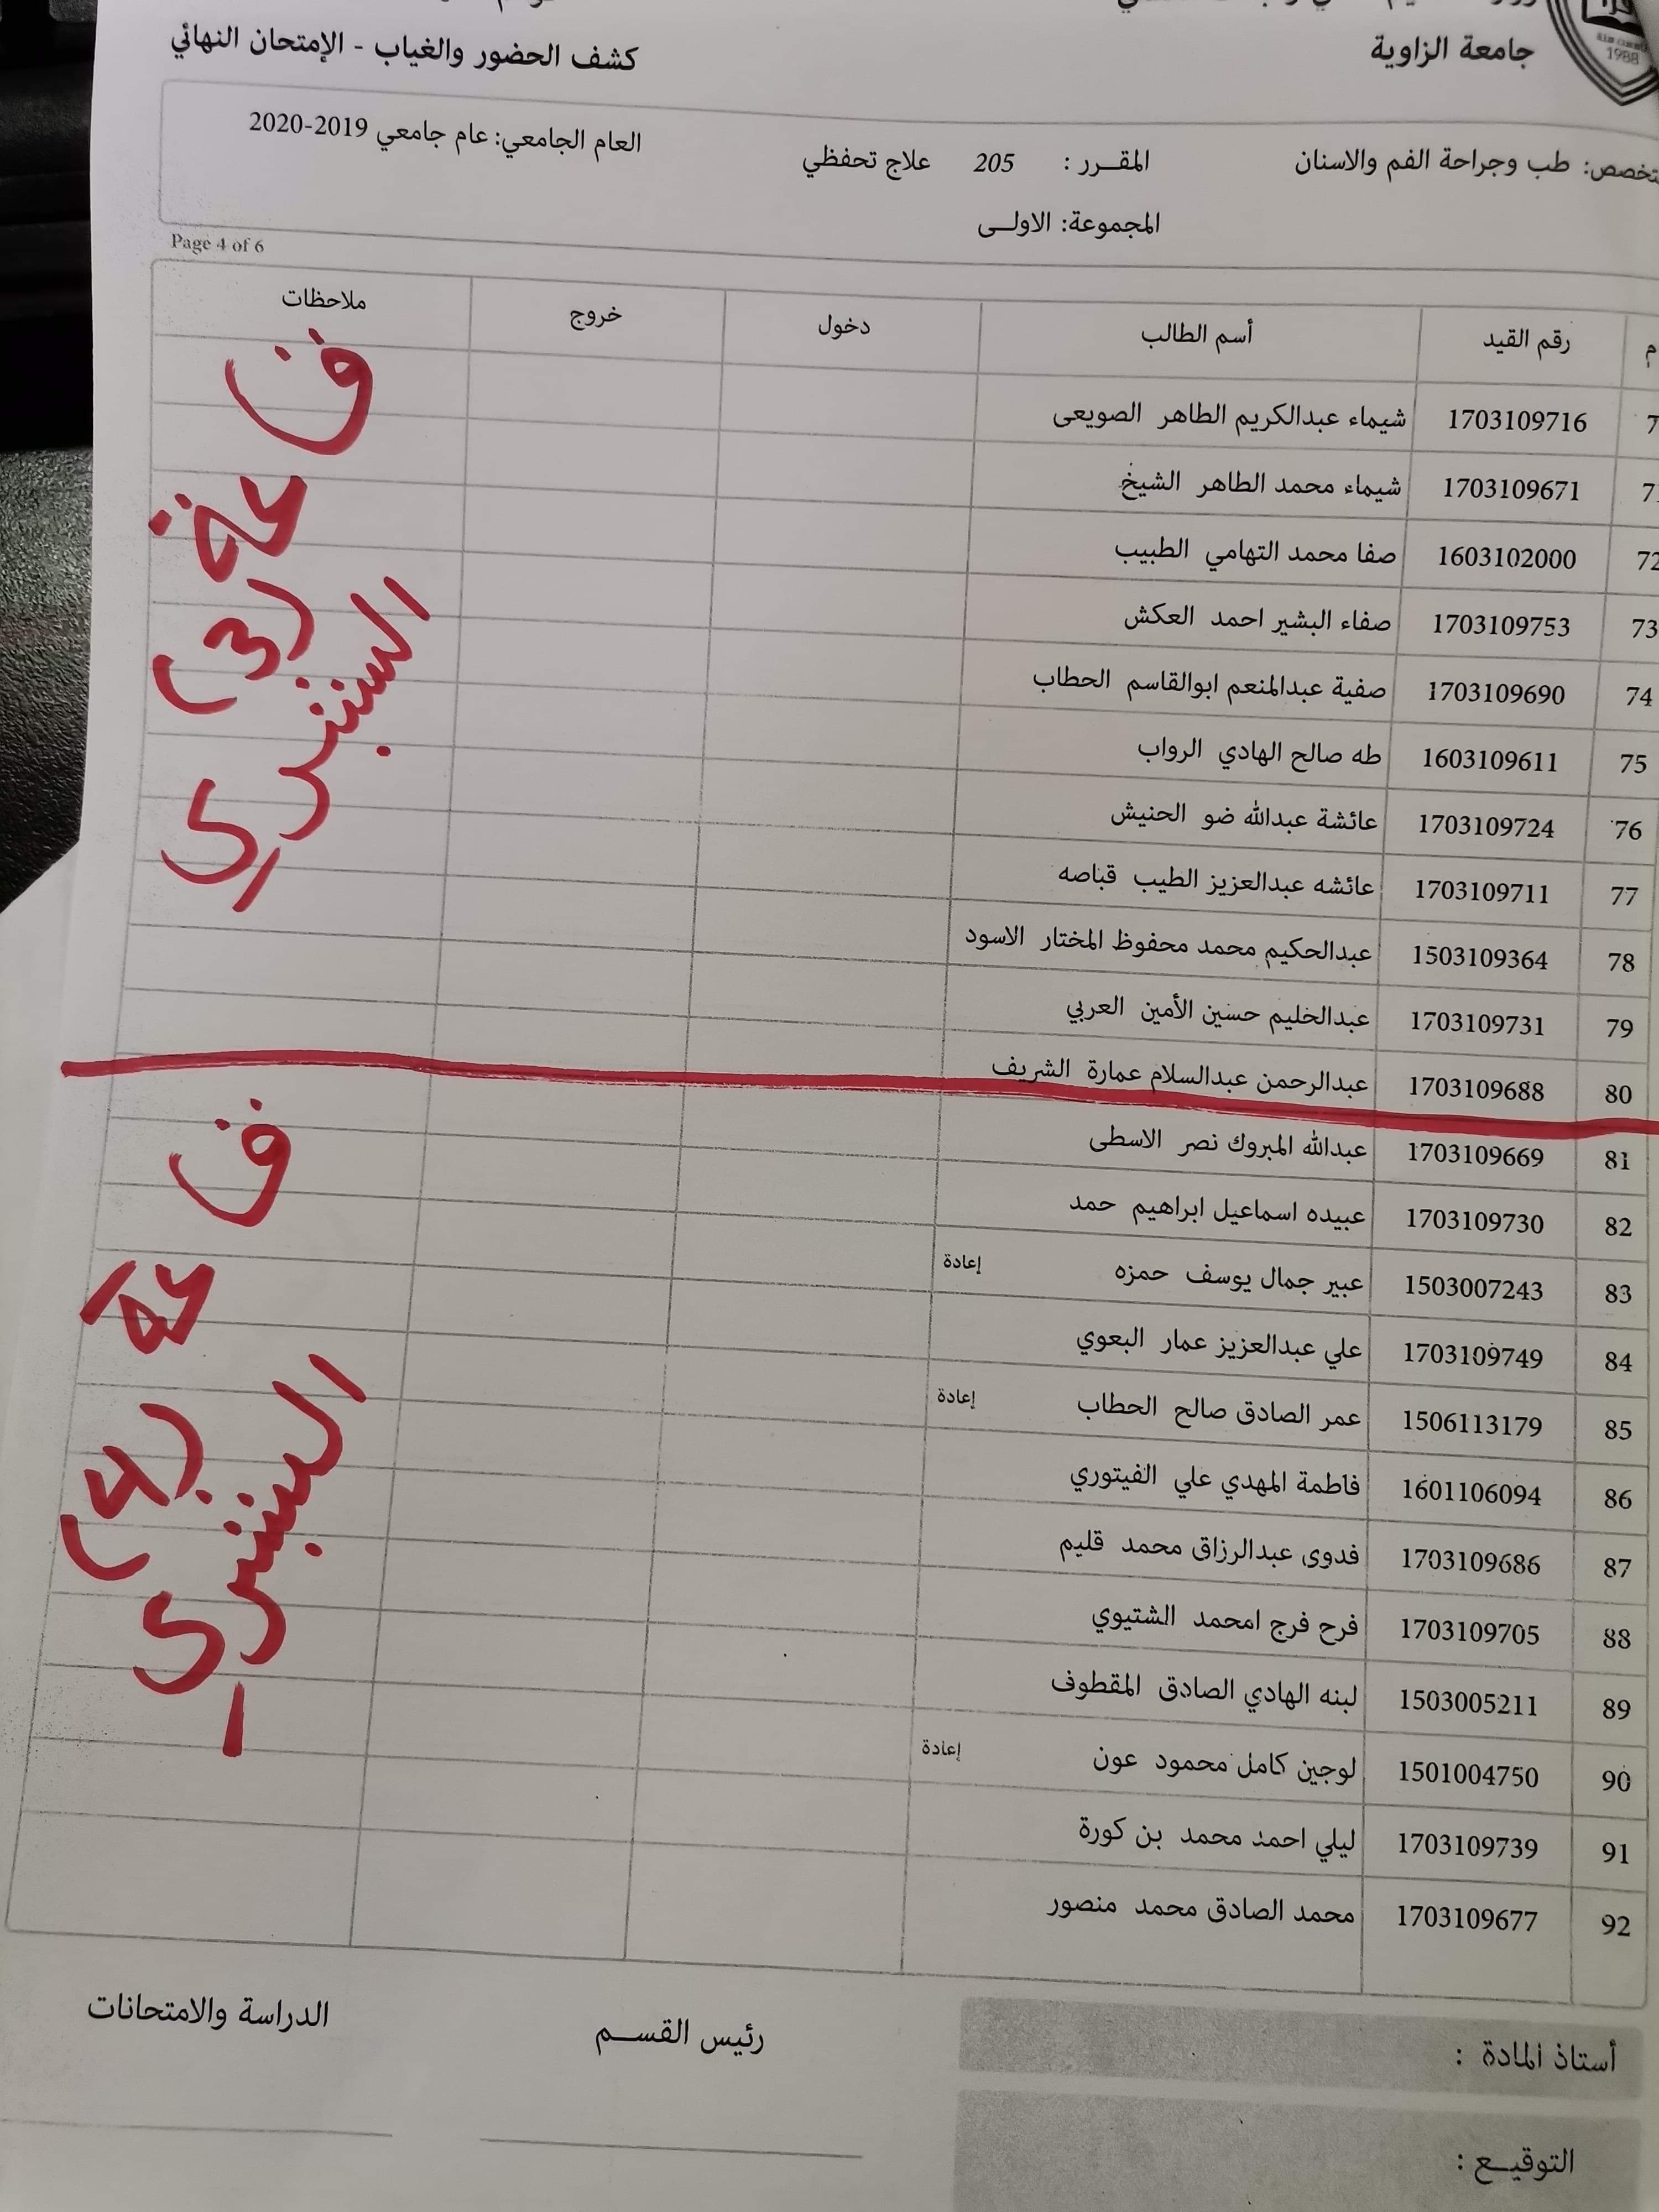 جامعة الزاوية
كشف الحضور والغياب - الإمتحان النهائي
1988
تخصص: طب وجراحة الفم والاسنان
المقـــرر : 205 علاج تحفظي
العام الجامعي: عام جامعي 2019-2020
المجموعة: الاولــى
Page 4 of 6
م رقم القيد أسم الطالب دخول خروج ملاحظات
1703109716 شيماء عبدالكريم الطاهر الصويعى
71 1703109671 شيماء محمد الطاهر الشيخ
72 1603102000 صفا محمد التهامي الطبيب
73 1703109753 صفاء البشير احمد العكش
74 1703109690 صفية عبدالمنعم ابوالقاسم الحطاب
75 1603109611 طه صالح الهادي الرواب
76 1703109724 عائشة عبدالله ضو الحنيش
77 1703109711 عائشه عبدالعزيز الطيب قباصه
78 1503109364 عبدالحكيم محمد محفوظ المختار الاسود
79 1703109731 عبدالخليم حسين الأمين العربي
80 1703109688 عبدالرحمن عبدالسلام عمارة الشريف
81 1703109669 عبدالله المبروك نصر الاسطى
82 1703109730 عبيده اسماعيل ابراهيم حمد
83 1503007243 عبير جمال يوسف حمزه إعادة
84 1703109749 علي عبدالعزيز عمار البعوي
85 1506113179 عمر الصادق صالح الحطاب إعادة
86 1601106094 فاطمة المهدي علي الفيتوري
87 1703109686 فدوى عبدالرزاق محمد قليم
88 1703109705 فرح فرج امحمد الشتيوي
89 1503005211 لبنه الهادي الصادق المقطوف
90 1501004750 لوجين كامل محمود عون إعادة
91 1703109739 ليلي احمد محمد بن كورة
92 1703109677 محمد الصادق محمد منصور
(3)
(4)
أستاذ المادة :
رئيس القســـم
الدراسة والامتحانات
التوقيـــع :